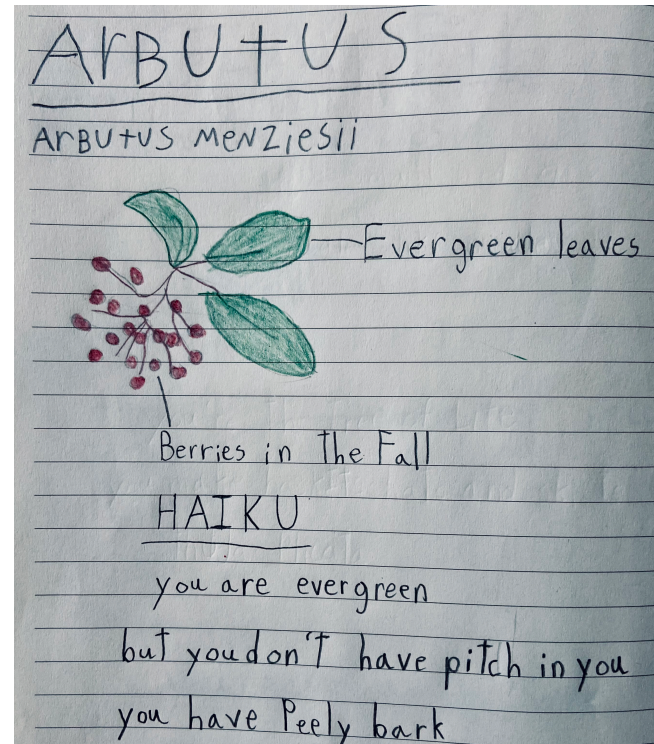 ArBUtUS
ArBUtUS MeNZiesii
Evergreen leaves
Berries in The Fall
HAIKU
you are evergreen
but you don'T have pitch in you
you have Peely bark